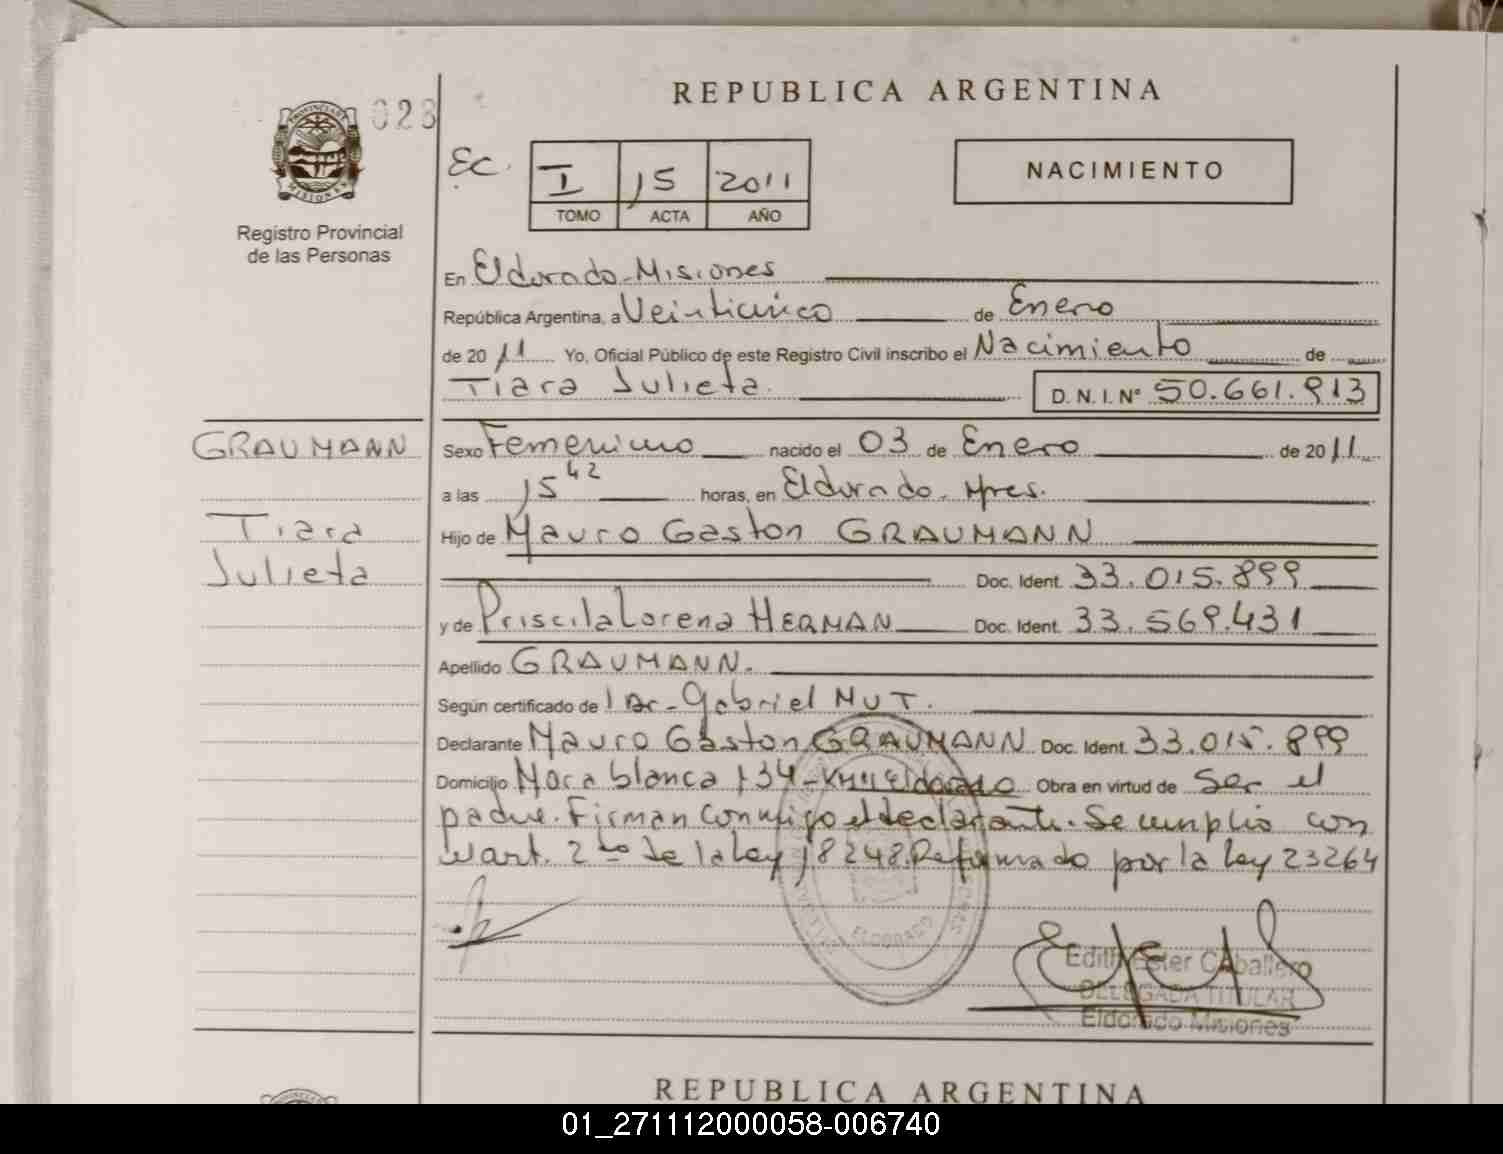 REPUBLICA ARGENTINA
028
EC. I 15 2011
TOMO ACTA AÑO
NACIMIENTO
Registro Provincial
de las Personas
En Eldorado-Misiones
República Argentina, a Veinticinco de Enero
de 2011 Yo, Oficial Público de este Registro Civil inscribo el Nacimiento de
Tiara Julieta. D. N. I. N° 50.661.913
GRAUMANN
Tiara
Julieta
Sexo Femenino nacido el 03 de Enero de 2011
a las 15 42 horas, en Eldorado. Mnes.
Hijo de Mauro Gaston GRAUMANN
Doc. Ident. 33.015.899
y de Priscila Lorena HERMAN Doc. Ident. 33.569.431
Apellido GRAUMANN.
Según certificado de Dr. Gabriel MUT.
Declarante Mauro Gaston GRAUMANN Doc. Ident. 33.015.899
Domicilio Mora blanca 134-KM11 Eldorado Obra en virtud de Ser el
padre. Firman conmigo el declarante. Se cumplio con
el art. 2do de la Ley 18248. Reformado por la ley 23264
ELDORADO
Edith Ester Caballero
DELEGADA TITULAR
Eldorado Misiones
REPUBLICA ARGENTINA
01_271112000058-006740